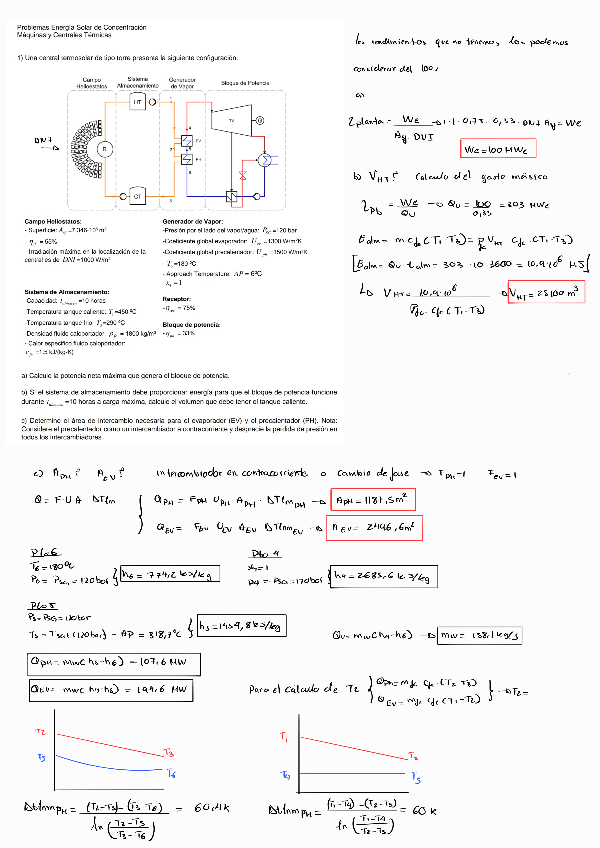 Problemas Energía Solar de Concentración
Máquinas y Centrales Térmicas
1) Una central termosolar de tipo torre presenta la siguiente configuración.
Campo Heliostatos
Sistema Almacenamiento
Generador de Vapor
Bloque de Potencia
DNI
R
HT
CT
EV
PH
TV
G
Campo Heliostatos:
- Superficie:
- =66%
- Irradiación máxima en la localización de la
central es de DNI =1000 W/m²
Sistema de Almacenamiento:
-Capacidad: =10 horas
-Temperatura tanque caliente: T1=450 ºC
-Temperatura tanque frío: T3=290 ºC
-Densidad fluido caloportador: = 1800 kg/m³
- Calor específico fluido caloportador:
=1.5 kJ/(kg·K)
Generador de Vapor:
-Presión por el lado del vapor/agua: =120 bar
-Coeficiente global evaporador: =1300 W/m²K
-Coeficiente global precalentador: W/m²K
- =180 ºC
- Approach Temperature: AP = 6ºC
- x4 = 1
Receptor:
- = 75%
Bloque de potencia:
- = 33%
a) Calcule la potencia neta máxima que genera el bloque de potencia.
b) Si el sistema de almacenamiento debe proporcionar energía para que el bloque de potencia funcione
durante =10 horas a carga máxima, calcule el volumen que debe tener el tanque caliente.
c) Determine el área de intercambio necesaria para el evaporador (EV) y el precalentador (PH). Nota:
Considere el precalentador como un intercambiador a contracorriente y desprecie la pérdida de presión en
todos los intercambiadores.
los rendimientos que no tenemos, los podemos
considerar del 100%
a)
ηplanta = We / Ay · DNI → 1·1·0,75·0,33·DNI Ay = We
We = 100 MWe
b) VHT? Calculo del gasto másico
ηPb = We / Qu → Qu = 100 / 0,33 = 303 MWe
Ealm = m cfc (T1 - T3) = ρfc VHT Cfc (T1-T3)
[Ealm = Qu · talm = 303 · 10 · 3600 = 10.9·10⁶ MJ]
↳ VHT = 10.9·10⁶ / ρfc · Cfc · (T1-T3) → VHT = 25100 m³
c) APH? AEV? Intercambiador en contracorriente o cambio de fase → FPH=1 FEV=1
Q = F·U·A ΔTlm
QPH = FPH UPH APH · ΔTlmPH → APH = 1181,5m²
QEV = FEV UEV AEV ΔTlmEV → AEV = 2496,6m²
Pto 6
T6 = 180ºC
P6 = PSG = 120bar } h6 = 774,2 kJ/kg
Pto 4
x4 = 1
P4 = PSG = 120bar } h4 = 2685,6 kJ/kg
Pto 5
P5 = PSG = 120bar
T5 = Tsat (120bar) - AP = 318,7ºC } h5 = 1454,8 kJ/kg
Qu = mw (h4-h6) → mw = 158,1 kg/s
QPH = mw (h5-h6) = 107,6 MW
QEV = mw (h4-h5) = 194,6 MW
Para el calculo de T2 { QPH = mfc Cfc (T2-T3)
QEV = mfc Cfc (T1-T2) } → T2 =
T2
T5
T3
T6
T1
T4
T2
T5
ΔtlmPH = (T2-T5) - (T3-T6) / ln (T2-T5 / T3-T6) = 60,4 K
ΔtlmPH = (T1-T4) - (T2-T5) / ln (T1-T4 / T2-T5) = 60 K